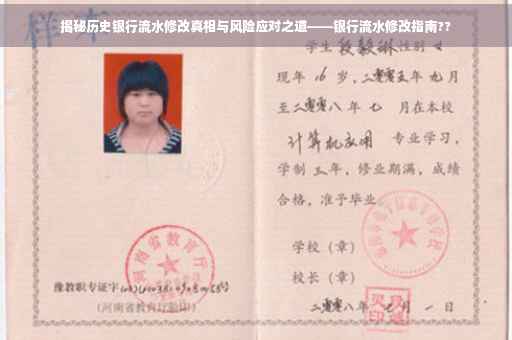 揭秘历史银行流水修改真相与风险应对之道——银行流水修改指南??
样本
学生 段毅琳 性别 女
现年 16 岁,二零零五年 九月
至二零零八年 七 月在本校
计算机应用 专业学习,
学制 三年,修业期满,成绩
合格,准予毕业。
学校(章)
校长(章)
二零零八年 七月 一 日
河南省教育厅
豫教职专证字
(河南省教育厅验印)